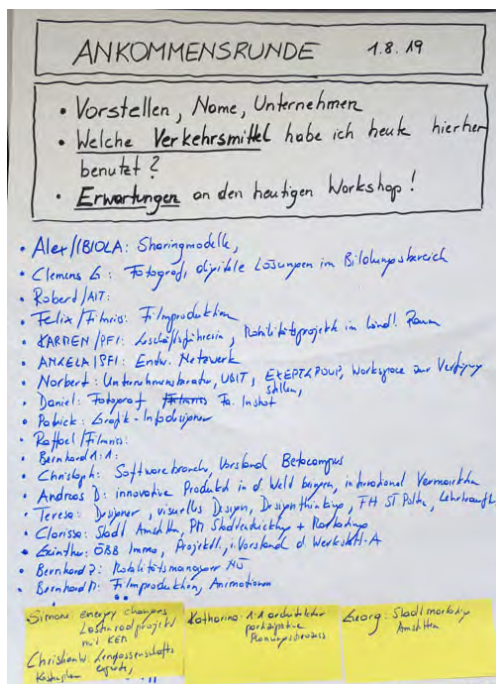 ANKOMMENSRUNDE 1.8.19
• Vorstellen, Name, Unternehmen
• Welche Verkehrsmittel habe ich heute hierher
benutzt?
• Erwartungen an den heutigen Workshop!
• Alex/IBIOLA: Sharingmodelle,
• Clemens G: Fotograf, digitale Lösungen im Bildungsbereich
• Robert/AIT:
• Felix/Filmriss: Filmproduktion
• KARMEN/PFI: Geschäftsführerin, Mobilitätsprojekte im ländl. Raum
• ANGELA/SFI: Entw. Netzwerk
• Norbert: Unternehmensberater, UBIT, Workspace zur Verfügung
stellen,
• Daniel: Fotograf Fa. Inshot
• Patrick: Grafik-Infodesigner
• Raffael/Filmriss:
• Bernhard 1:1:
• Christoph: Softwarebranch, Vorstand Betacampus
• Andreas D: innovative Produkte in d. Welt bringen, international
• Teresa: Designer, visuelles Design, Designthinking, FH ST Pölten,
• Clarissa: Stadt Amstetten, PM Stadtentwicklung +
• Günther: ÖBB Immo, Projektl., Vorstand d. Werkstatt-A
• Bernhard Z: Mobilitätsmanager NÖ
• Bernhard: Filmproduktion, Animationen
Simon: energy changers
Lastenradprojekt
mit KEM
Christian W:
Katharina: 1:1 architektur
partizipative
Planungsprozess
Georg: Stadtmarketing
Amstetten